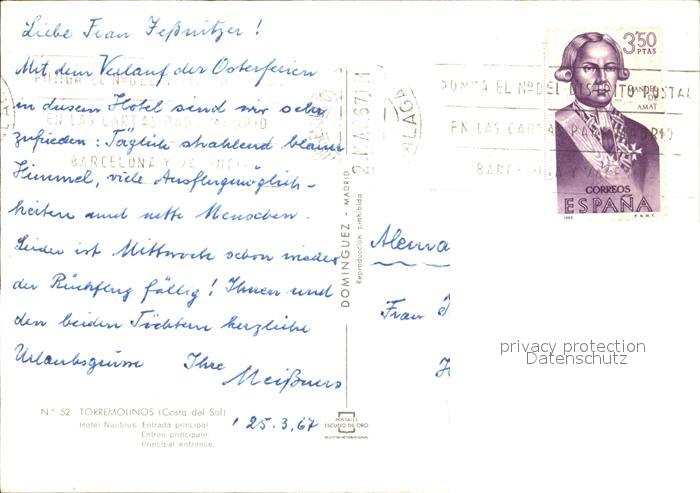 Liebe Frau Feßnitzer!
Mit dem Verlauf der Osterferien
in diesem Hotel sind wir sehr
zufrieden: Täglich strahlend blauer
Himmel, viele Ausflugmöglich-
keiten und nette Menschen.
Leider ist Mittwoch schon wieder
der Rückflug fällig! Ihnen und
den beiden Töchtern herzliche
Urlaubsgrüsse Ihre
Meißners
25.3.67
N.° 52 TORREMOLINOS (Costa del Sol)
Hotel Nautilus. Entrada principal
Entrée principale
Principal entrance.
DOMINGUEZ - MADRID
Reproducción prohibida
POSTALES
ESCUDO DE ORO
PONGA EL Nº DEL DISTRITO POSTAL
EN LAS CARTAS PARA MADRID
BARCELONA Y
MALAGA
3'50
PTAS
MANUEL
DE
AMAT
CORREOS
ESPAÑA
F.N.M.T.
Alema
Frau
privacy protection
Datenschutz